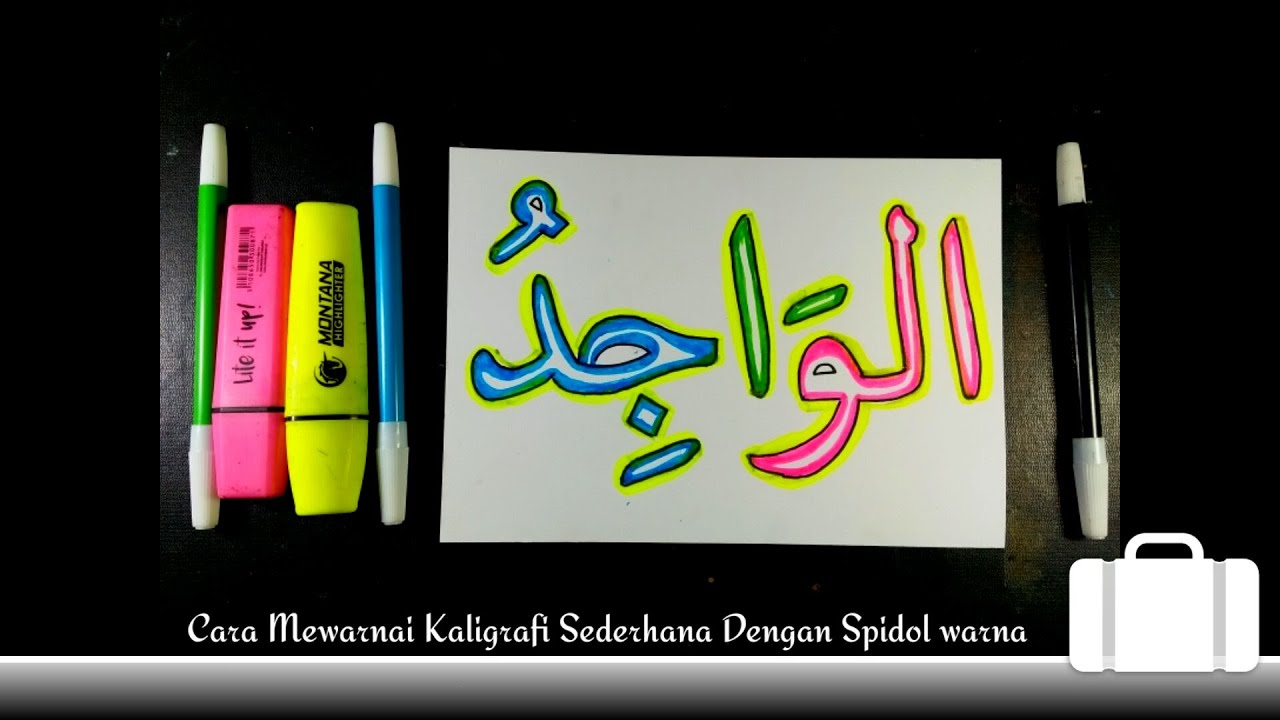 Lite it up!
MONTANA
HIGHLIGHTER
الوَاجِدُ
Cara Mewarnai Kaligrafi Sederhana Dengan Spidol warna